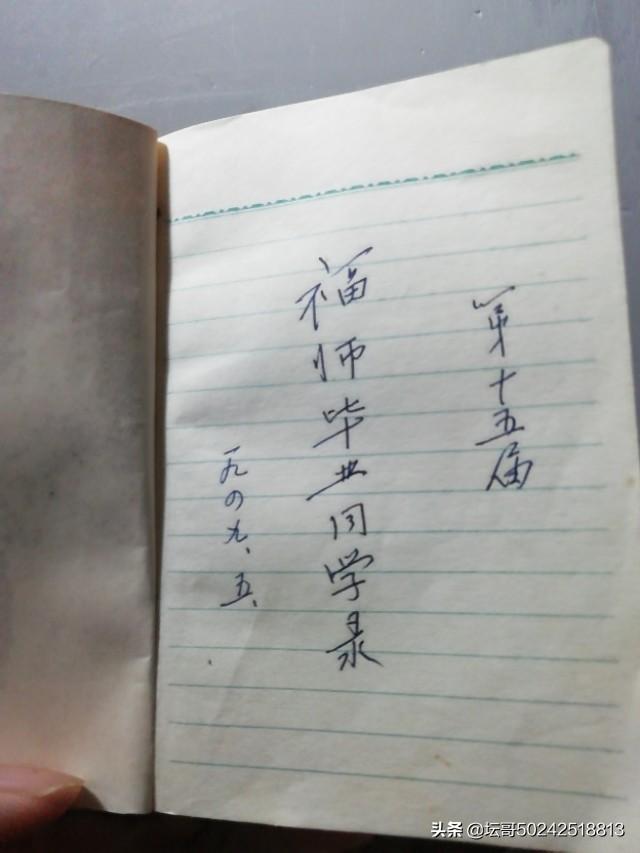 第十五届
福师毕业同学录
一九四九、五、
头条 @坛哥50242518813